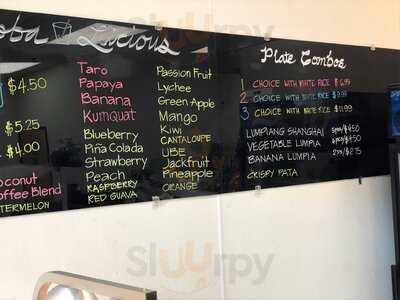 oba Licious
$4.50
$5.25
$4.00
oconut
offee Blend
TERMELON
Taro
Papaya
Banana
Kumquat
Blueberry
Piña Colada
Strawberry
Peach
RASPBERRY
RED GUAVA
Passion Fruit
Lychee
Green Apple
Mango
Kiwi
CANTALOUPE
UBE
Jackfruit
Pineapple
ORANGE
Plate Combos
1 CHOICE WITH WHITE RICE
2 CHOICE WITH WHITE RICE
3 CHOICE WITH WHITE RICE $11.99
LUMPIANG SHANGHAI $4.50
VEGETABLE LUMPIA $4.50
BANANA LUMPIA $2.75
CRISPY PATA
Sluurpy